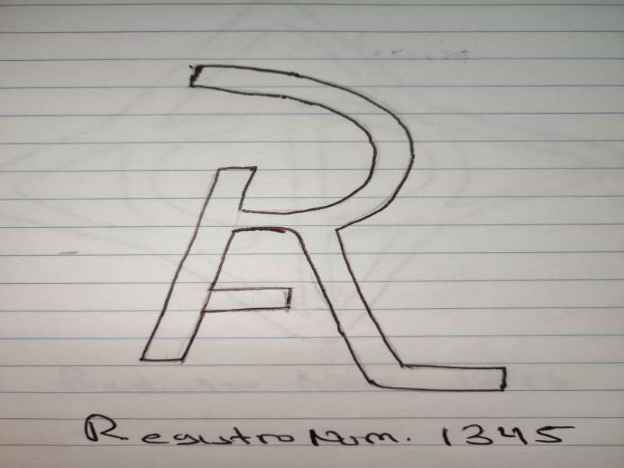 Registro Num. 1345